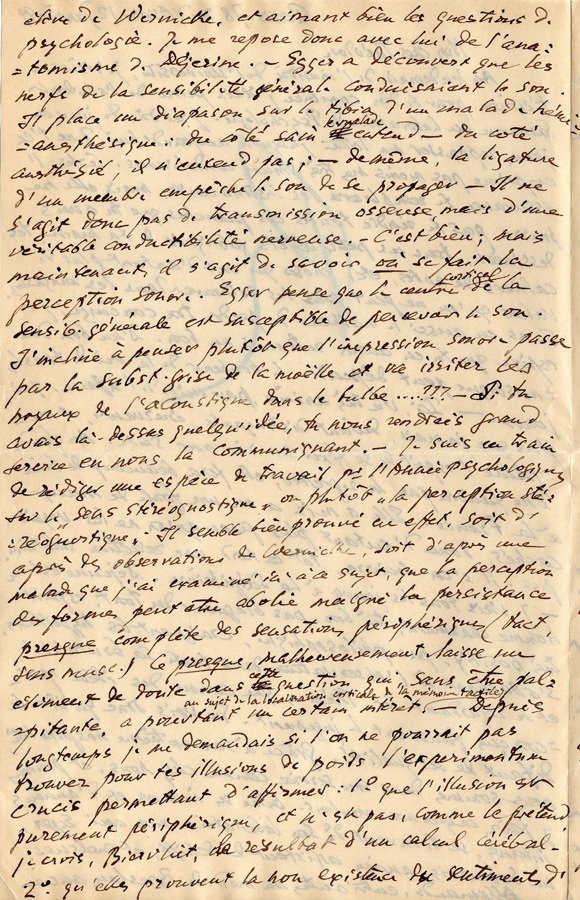 élève de Wernicke, et aimant bien les questions de
psychologie. Je me repose donc avec lui de l'ana-
=tomisme de Déjerine. — Egger a découvert que les
nerfs de la sensibilité générale conduisaient le son.
Il place un diapason sur le tibia d'un malade hémi-
=anesthésique : du côté sain le malade entend — du côté
anesthésié, il n'entend pas ; — de même, la ligature
d'un membre empêche le son de se propager — Il ne
s'agit donc pas de transmission osseuse, mais d'une
véritable conductibilité nerveuse. — C'est bien ; mais
maintenant, il s'agit de savoir où se fait la
perception sonore. Egger pense que le centre cortical de la
sensib. générale est susceptible de percevoir le son.
J'incline à penser plutôt que l'impression sonore passe
par la subst. grise de la moëlle et va irriter les
noyaux de l'acoustique dans le bulbe ....??? — Si tu
avais là-dessus quelqu'idée, tu nous rendrais grand
service en nous la communiquant. — Je suis en train
de rédiger une espèce de travail pr l'Année psychologique
sur le "sens stéréognostique", ou plutôt "la perception sté-
=réognostique". Il semble bien prouvé en effet, soit d'
après des observations de Wernicke, soit d'après une
malade que j'ai examinée ici à ce sujet, que la perception
des formes peut être abolie malgré la persistance
presque complète des sensations périphériques (tact,
sens musc.) Ce presque, malheureusement laisse un
élément de doute dans cette question qui, sans être pal-
=pitante, a pourtant un certain intérêt, au sujet de la localisation corticale de la mémoire tactile — Depuis
longtemps je me demandais si l'on ne pourrait pas
trouver pour tes illusions de poids l'experimentum
crucis permettant d'affirmer : 1o que l'illusion est
purement périphérique, et n'est pas, comme le prétend
je crois, Biervliet, le résultat d'un calcul cérébral —
2o qu'elles prouvent la non existence du sentiment de